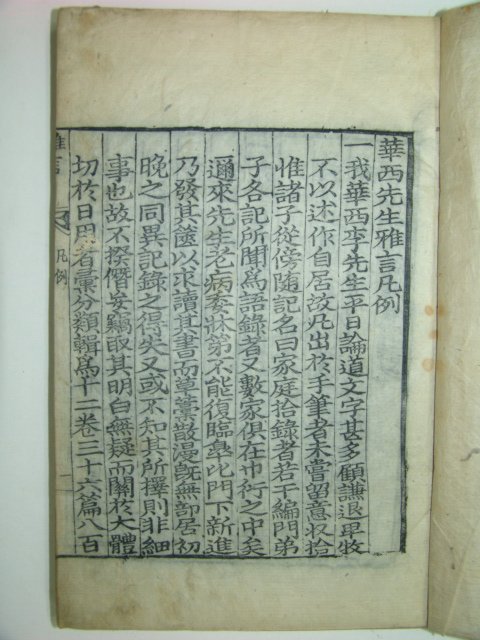 華西先生雅言凡例
一我華西李先生平日論道文字甚多顧謙退卑牧
不以述作自居故凡出於手筆者未嘗留意收拾
惟諸子從傍隨記名曰家庭拾錄者若干編門弟
子各記所聞爲語錄者又數家俱在巾衍之中矣
邇來先生老病委牀第不能復臨皐比門下新進
乃發其篋以求讀其書而草藁散漫旣無部居初
晚之同異記錄之得失又或不知其所擇則非細
事也故不揆僭妄竊取其明白無疑而關於大體
切於日用者彙分類輯爲十二卷三十六篇八百
雅言
凡例
一